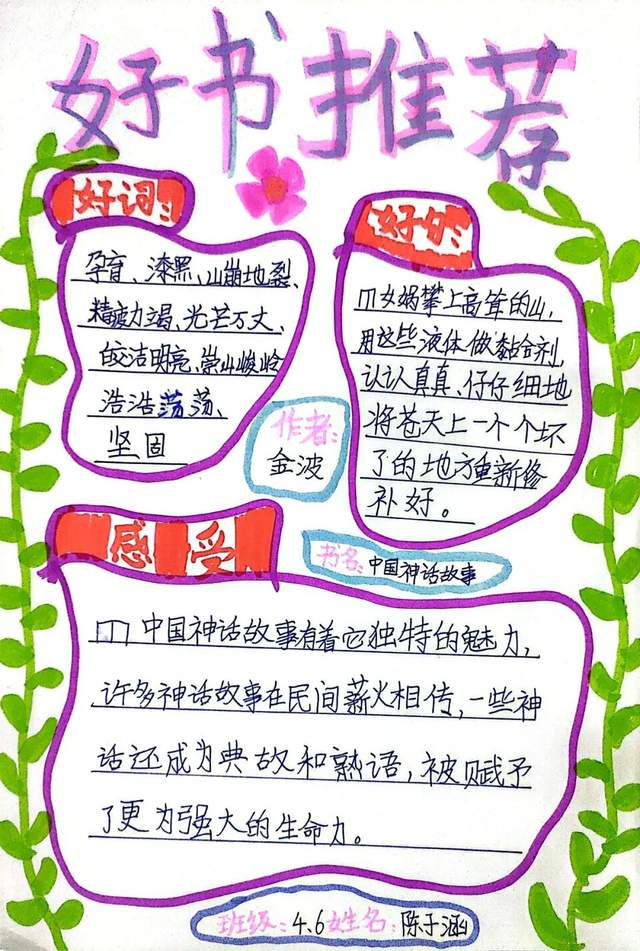 好书推荐
好词:
孕育、漆黑、山崩地裂、
精疲力竭、光芒万丈、
皎洁明亮、崇山峻岭
浩浩荡荡、
坚固
好句:
女娲攀上高耸的山,
用这些液体做黏合剂,
认认真真、仔仔细细地
将苍天上一个个坏
了的地方重新修
补好。
作者:
金波
书名:中国神话故事
感受
中国神话故事有着它独特的魅力,
许多神话故事在民间薪火相传,一些神
话还成为典故和熟语,被赋予
了更为强大的生命力。
班级:4.6姓名:陈子涵